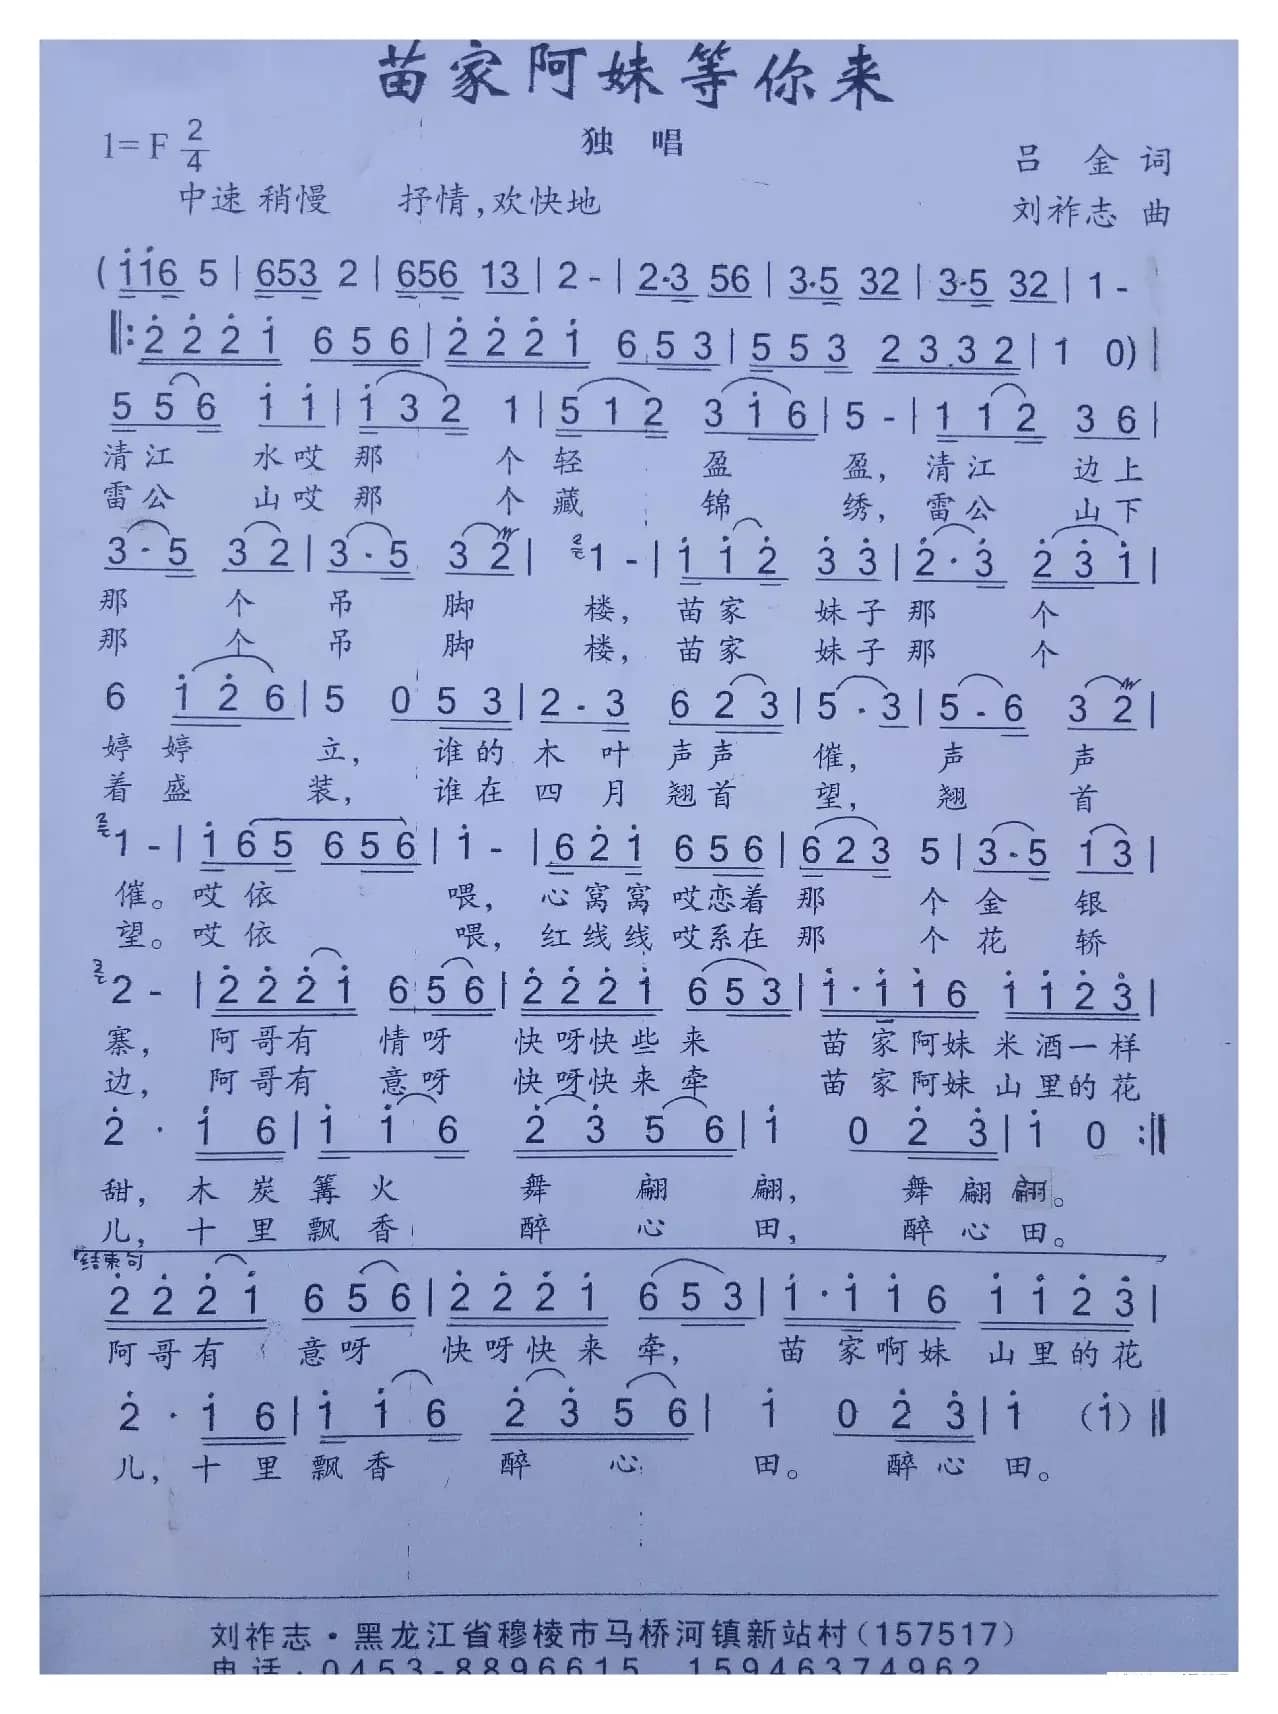 苗家阿妹等你来
1=F 2/4
独 唱
吕 金 词
中速 稍慢 抒情,欢快地
刘祚志 曲
(1̇1̇6 5 | 653 2 | 656 13 | 2 - | 2·3 56 | 3·5 32 | 3·5 32 | 1 -
‖: 2̇ 2̇ 2̇ 1̇ 6 5 6 | 2̇ 2̇ 2̇ 1̇ 6 5 3 | 5 5 3 2 3 3 2 | 1 0) |
5 5 6 1̇ 1̇ | 1̇ 3 2 1 | 5 1 2 3 1̇ 6 | 5 - | 1 1 2 3 6 |
清江 水哎那 个轻 盈 盈,清江 边上
雷公 山哎那 个藏 锦 绣,雷公 山下
3·5 3 2 | 3·5 3 2 | 1 - | 1̇ 1̇ 2̇ 3̇ 3̇ | 2̇·3̇ 2̇ 3̇ 1̇ |
那 个 吊 脚 楼,苗家 妹子那 个
那 个 吊 脚 楼,苗家 妹子那 个
6 1̇ 2̇ 6 | 5 0 5 3 | 2·3 6 2 3 | 5·3 | 5·6 3 2 |
婷婷 立,谁的木叶声声 催,声 声
着盛 装,谁在四月翘首 望,翘 首
1 - | 1̇ 6 5 6 5 6 | 1̇ - | 6 2̇ 1̇ 6 5 6 | 6 2 3 5 | 3·5 1 3 |
催。哎依 喂,心窝窝哎恋着那 个金 银
望。哎依 喂,红线线哎系在那 个花 轿
2 - | 2̇ 2̇ 2̇ 1̇ 6 5 6 | 2̇ 2̇ 2̇ 1̇ 6 5 3 | 1̇·1̇ 1̇ 6 1̇ 1̇ 2̇ 3̇ |
寨,阿哥有 情呀 快呀快些来 苗家阿妹米酒一样
边,阿哥有 意呀 快呀快来牵 苗家阿妹山里的花
2̇· 1̇ 6 | 1̇ 1̇ 6 2̇ 3̇ 5 6 | 1̇ 0 2̇ 3̇ | 1̇ 0 :‖
甜,木炭篝火 舞 翩 翩,舞翩翩。
儿,十里飘香 醉 心 田,醉心田。
结束句
2̇ 2̇ 2̇ 1̇ 6 5 6 | 2̇ 2̇ 2̇ 1̇ 6 5 3 | 1̇·1̇ 1̇ 6 1̇ 1̇ 2̇ 3̇ |
阿哥有 意呀 快呀快来牵, 苗家啊妹 山里的花
2̇· 1̇ 6 | 1̇ 1̇ 6 2̇ 3̇ 5 6 | 1̇ 0 2̇ 3̇ | 1̇ (1̇) ‖
儿,十里飘香 醉 心 田。醉心田。
刘祚志·黑龙江省穆棱市马桥河镇新站村(157517)
电话·0453-8896615 15946374962